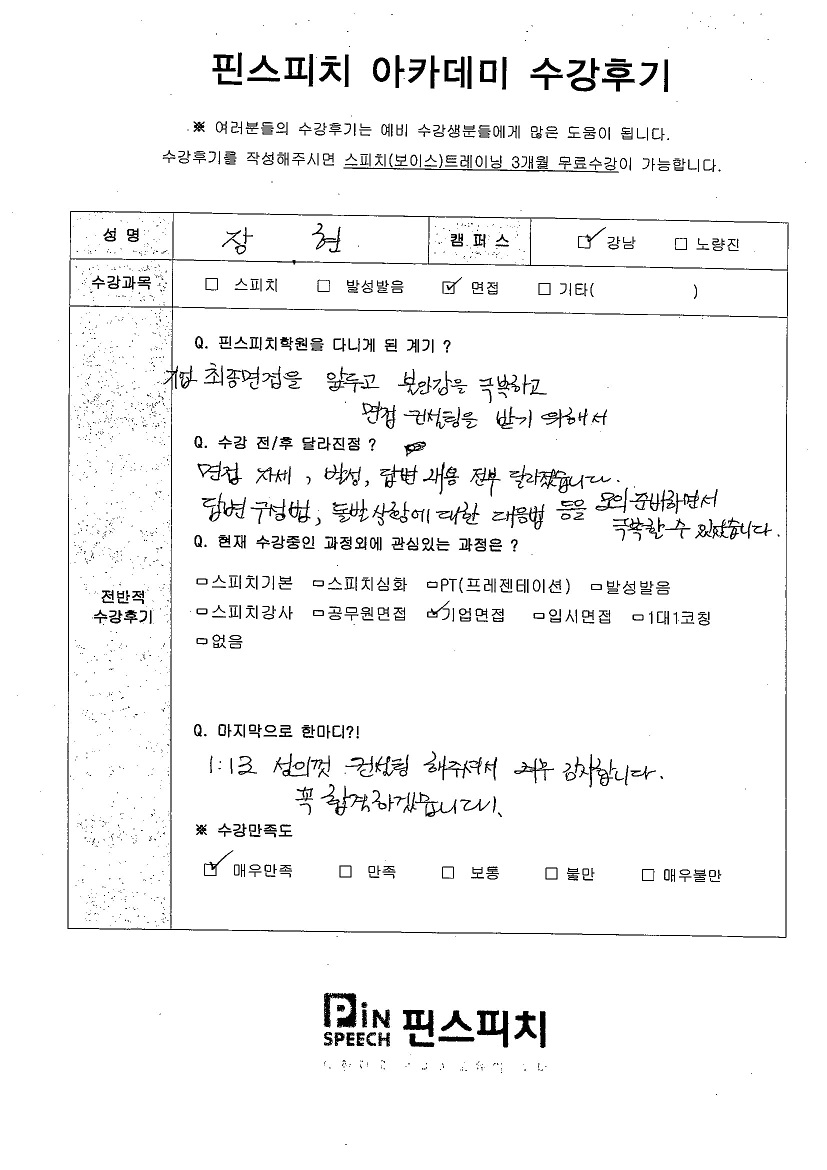 핀스피치 아카데미 수강후기
※ 여러분들의 수강후기는 예비 수강생분들에게 많은 도움이 됩니다.
수강후기를 작성해주시면 스피치(보이스)트레이닝 3개월 무료수강이 가능합니다.
성 명 장 현 캠 퍼 스 ☑ 강남 □ 노량진
수강과목 □ 스피치 □ 발성발음 ☑ 면접 □ 기타( )
Q. 핀스피치학원을 다니게 된 계기 ?
기업 최종면접을 앞두고 불안감을 극복하고
면접 컨설팅을 받기 위해서
Q. 수강 전/후 달라진점 ?
면접 자세, 발성, 답변 내용 전부 달라졌습니다.
답변 구성법, 돌발상황에 대한 대응법 등을 모의 준비하면서
극복할 수 있었습니다.
Q. 현재 수강중인 과정외에 관심있는 과정은 ?
□스피치기본 □스피치심화 □PT(프레젠테이션) □발성발음
전반적
수강후기
□스피치강사 □공무원면접 ☑기업면접 □입시면접 □1대1코칭
□없음
Q. 마지막으로 한마디?!
1:1로 성의껏 컨설팅 해주셔서 너무 감사합니다.
꼭 합격하겠습니다!
※ 수강만족도
☑ 매우만족 □ 만족 □ 보통 □ 불만 □ 매우불만
PiN
SPEECH 핀스피치